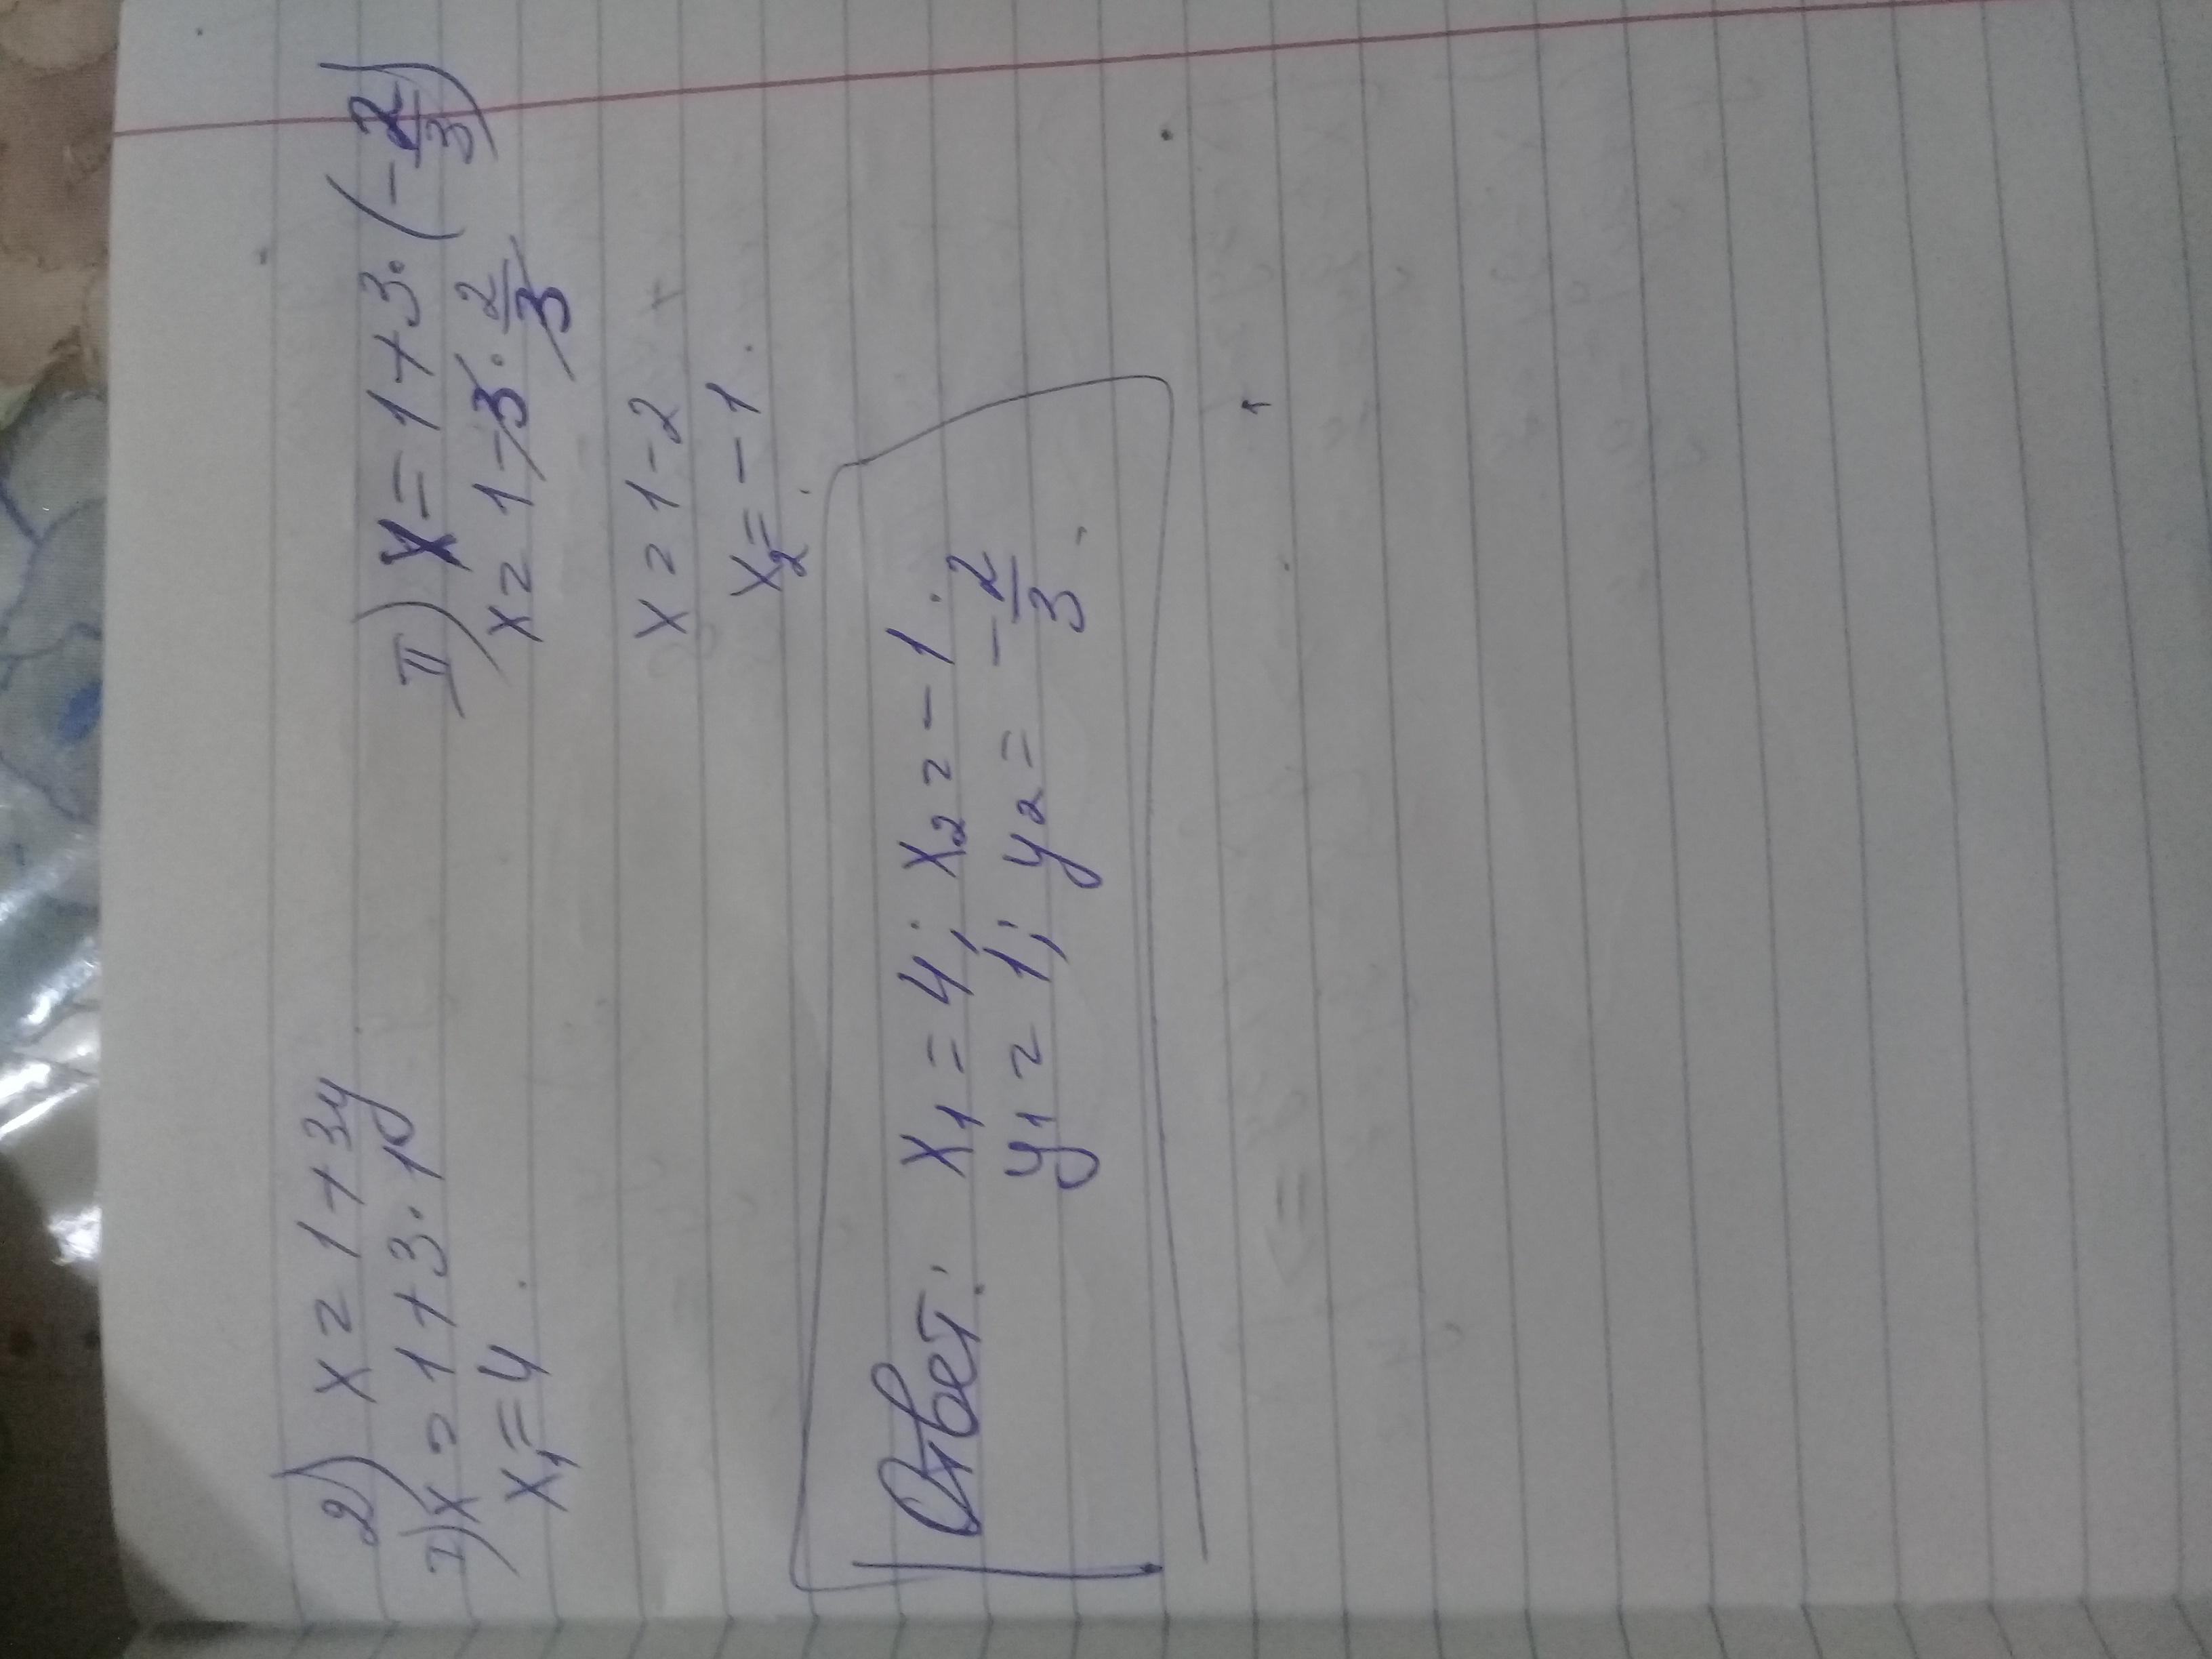 2) x = 1 + 3y
I) x = 1 + 3 · 1
x₁ = 4.
II) x = 1 + 3 · (-2/3)
x = 1 - 3 · 2/3
x = 1 - 2
x₂ = -1.
Ответ: x₁ = 4; x₂ = -1.
y₁ = 1; y₂ = -2/3.